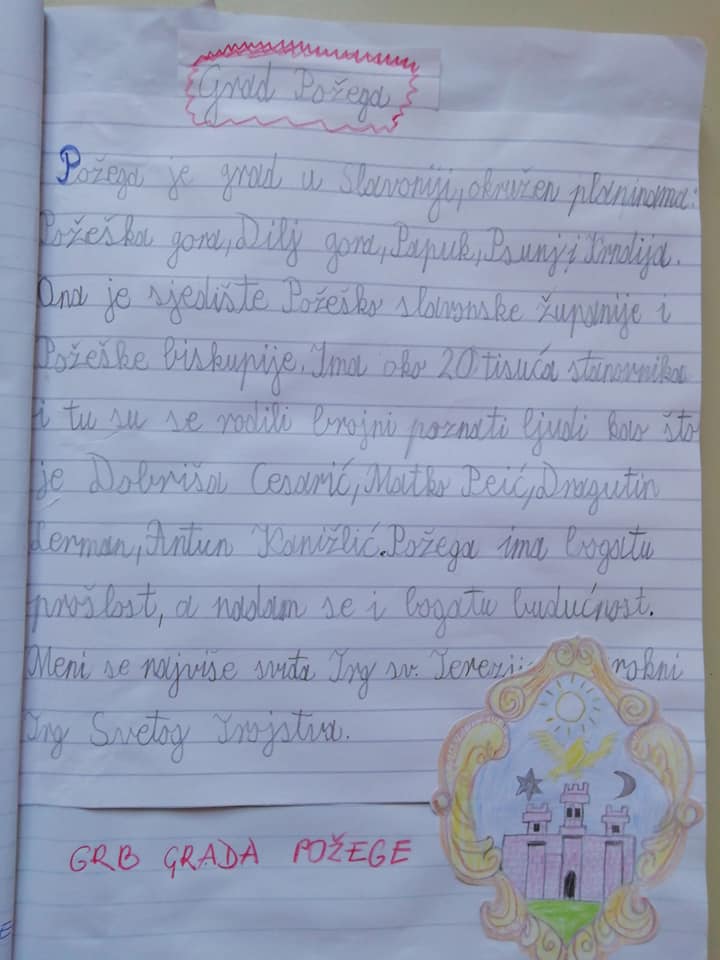 Grad Požega
Požega je grad u Slavoniji, okružen planinama:
Požeška gora, Dilj gora, Papuk, Psunj i Krndija.
Ona je sjedište Požeško slavonske županije i
Požeške biskupije. Ima oko 20 tisuća stanovnika
i tu su se rodili brojni poznati ljudi kao što
je Dobriša Cesarić, Matko Peić, Dragutin
Lerman, Antun Kanižlić. Požega ima bogatu
prošlost, a nadam se i bogatu budućnost.
Meni se najviše sviđa Trg sv. rokni
Trg Svetog Trojstva.
GRB GRADA POŽEGE
E